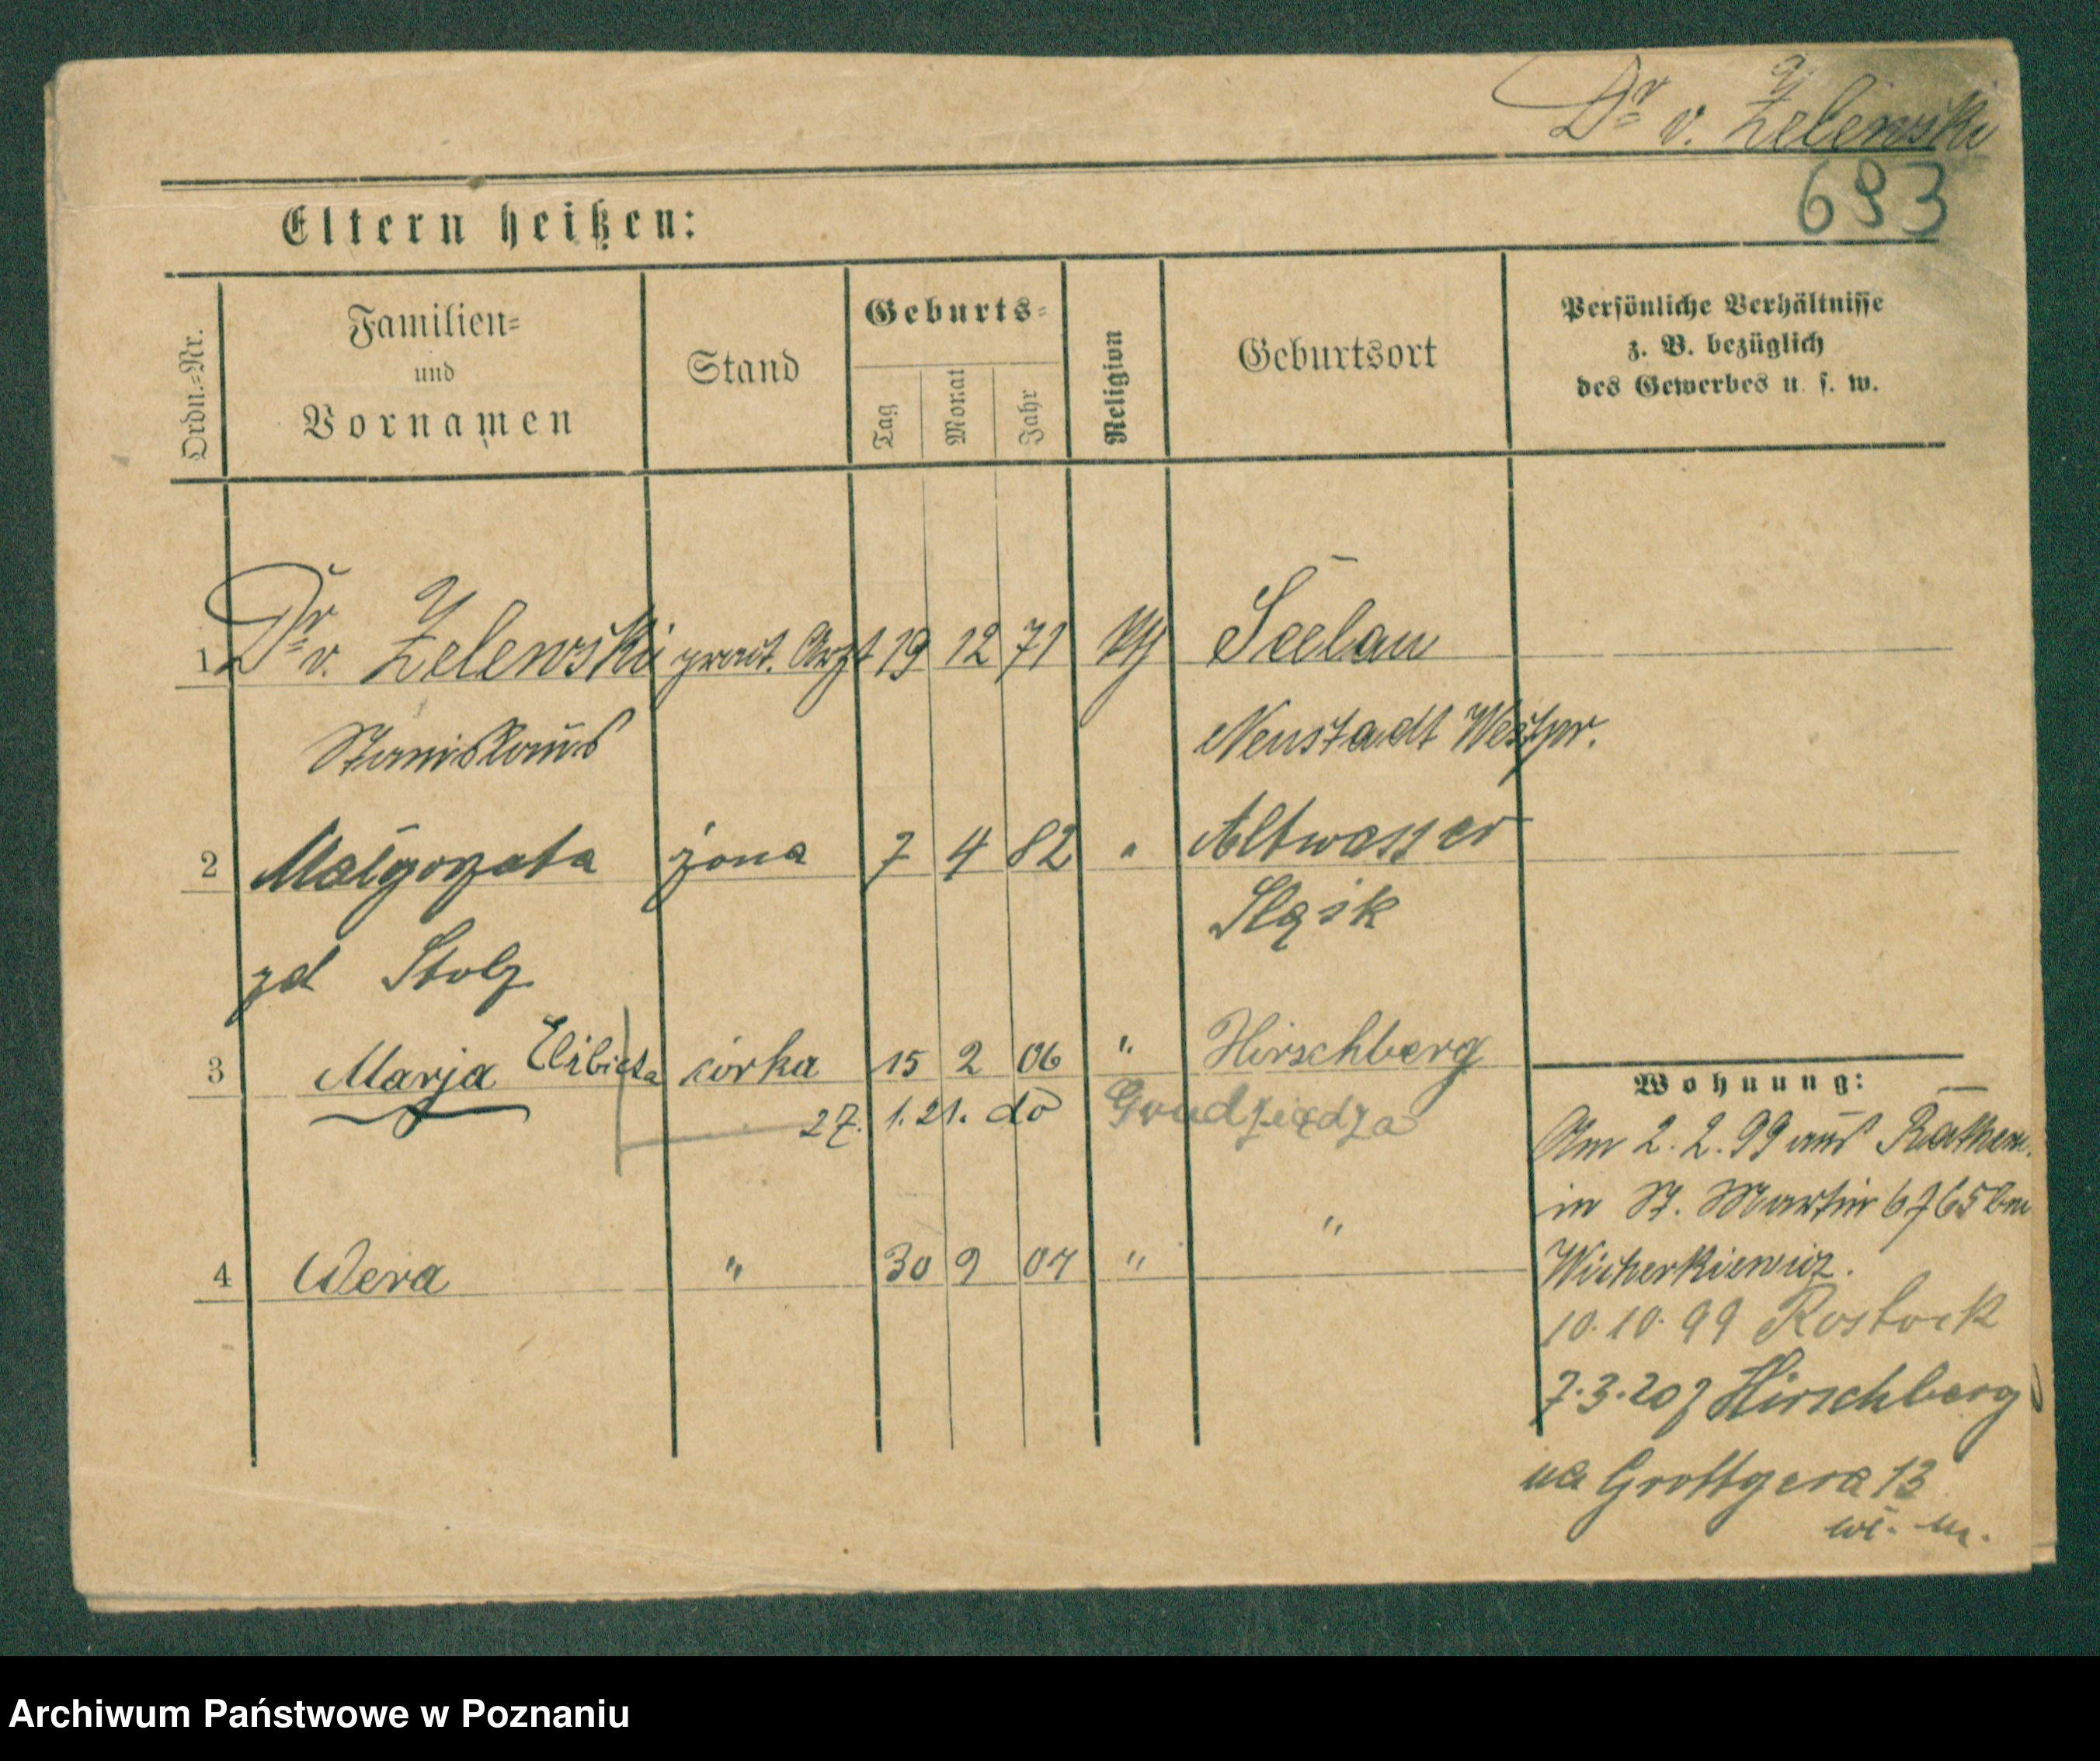 Dr v. Zelewski
693
Eltern heißen:
Ordn.=Nr.
Familien=
und
Vornamen
Stand
Geburts=
Tag
Monat
Jahr
Religion
Geburtsort
Persönliche Verhältnisse
z. B. bezüglich
des Gewerbes u. s. w.
1 Dr v. Zelewski pract. Arzt 19 12 71 kth Seelau
Stanislaus Neustadt Westpr.
2 Małgorzata żona 7 4 82 " Altwasser
zd Stolz Sląsk
3 Marja Elżbieta córka 15 2 06 " Hirschberg
27. 1.21. do Grudziądza
4 Wera " 30 9 07 " "
Wohnung:
Am 2.2.99 aus
in St. Martin
Wicherkiewicz.
10.10.99 Rostock
7.3.20 z Hirschberg
na Grottgera 13
wł. m.
Archiwum Państwowe w Poznaniu